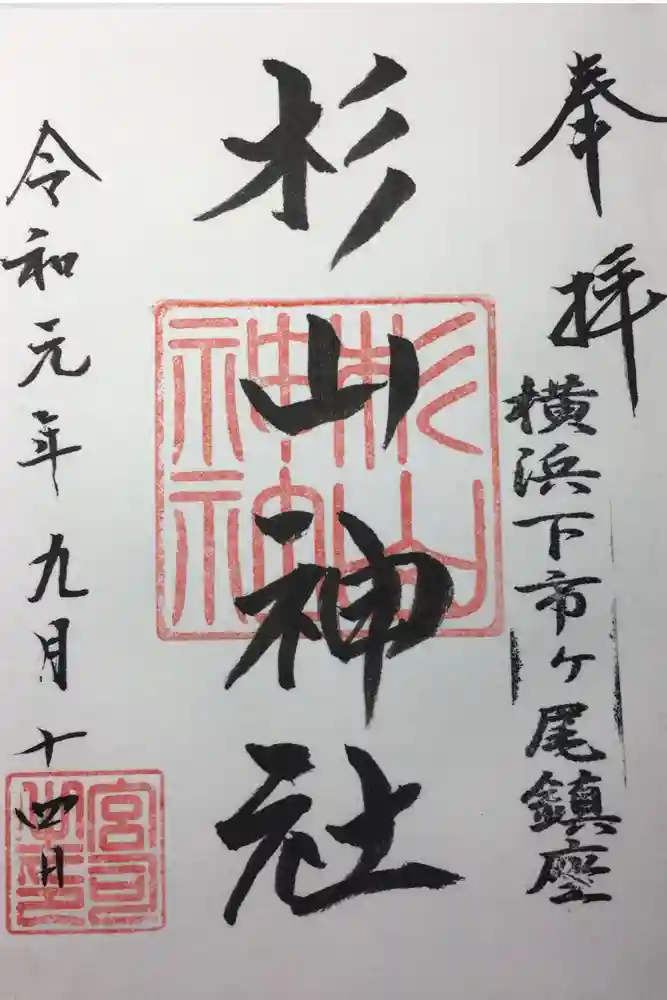 奉拝
横浜下市ケ尾鎮座
杉山神社
令和元年九月十四日
杉山
神社
宮司